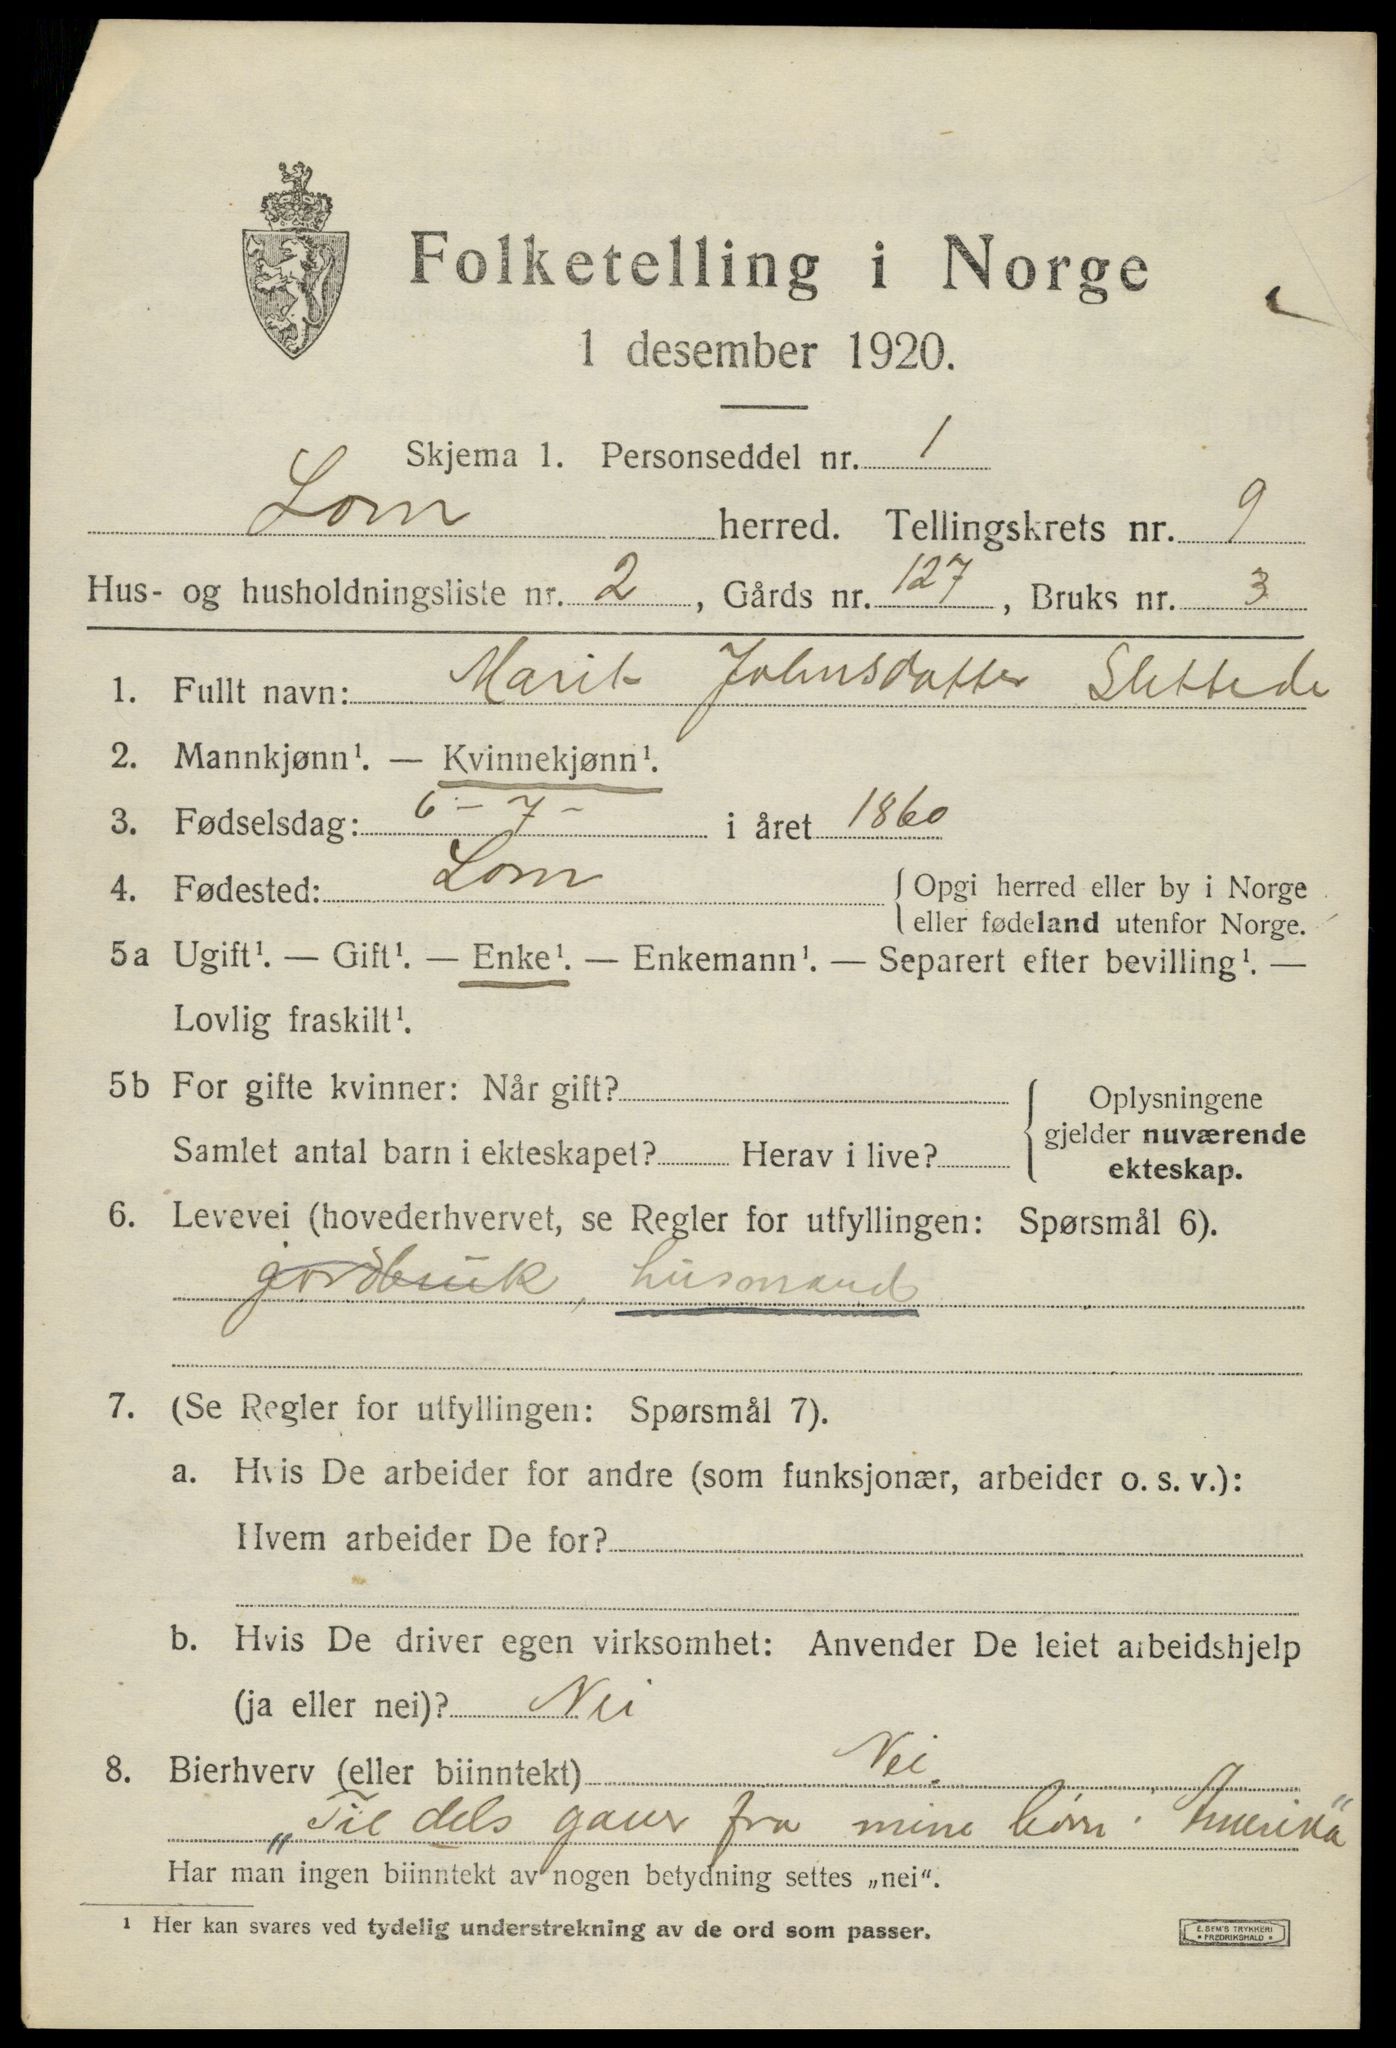 Folketelling i Norge
1 desember 1920.
Skjema 1. Personseddel nr. 1
Lom herred. Tellingskrets nr. 9
Hus- og husholdningsliste nr. 2, Gårds nr. 127, Bruks nr. 3
1. Fullt navn: Marit Johnsdatter Slettede
2. Mannkjønn¹. — Kvinnekjønn¹.
3. Fødselsdag: 6 - 7 - i året 1860
4. Fødested: Lom { Opgi herred eller by i Norge
eller fødeland utenfor Norge.
5a Ugift¹. — Gift¹. — Enke¹. — Enkemann¹. — Separert efter bevilling¹. —
Lovlig fraskilt¹.
5b For gifte kvinner: Når gift?
Samlet antal barn i ekteskapet? Herav i live?
{ Oplysningene
gjelder nuværende
ekteskap.
6. Levevei (hovederhvervet, se Regler for utfyllingen: Spørsmål 6).
jordbruk, husmand
7. (Se Regler for utfyllingen: Spørsmål 7).
a. Hvis De arbeider for andre (som funksjonær, arbeider o. s. v.):
Hvem arbeider De for?
b. Hvis De driver egen virksomhet: Anvender De leiet arbeidshjelp
(ja eller nei)? Nei
8. Bierhverv (eller biinntekt) Nei.
„Til dels gaver fra mine börn i Amerika"
Har man ingen biinntekt av nogen betydning settes „nei“.
¹ Her kan svares ved tydelig understrekning av de ord som passer.
E. SEM'S TRYKKERI
• FREDRIKSHALD •